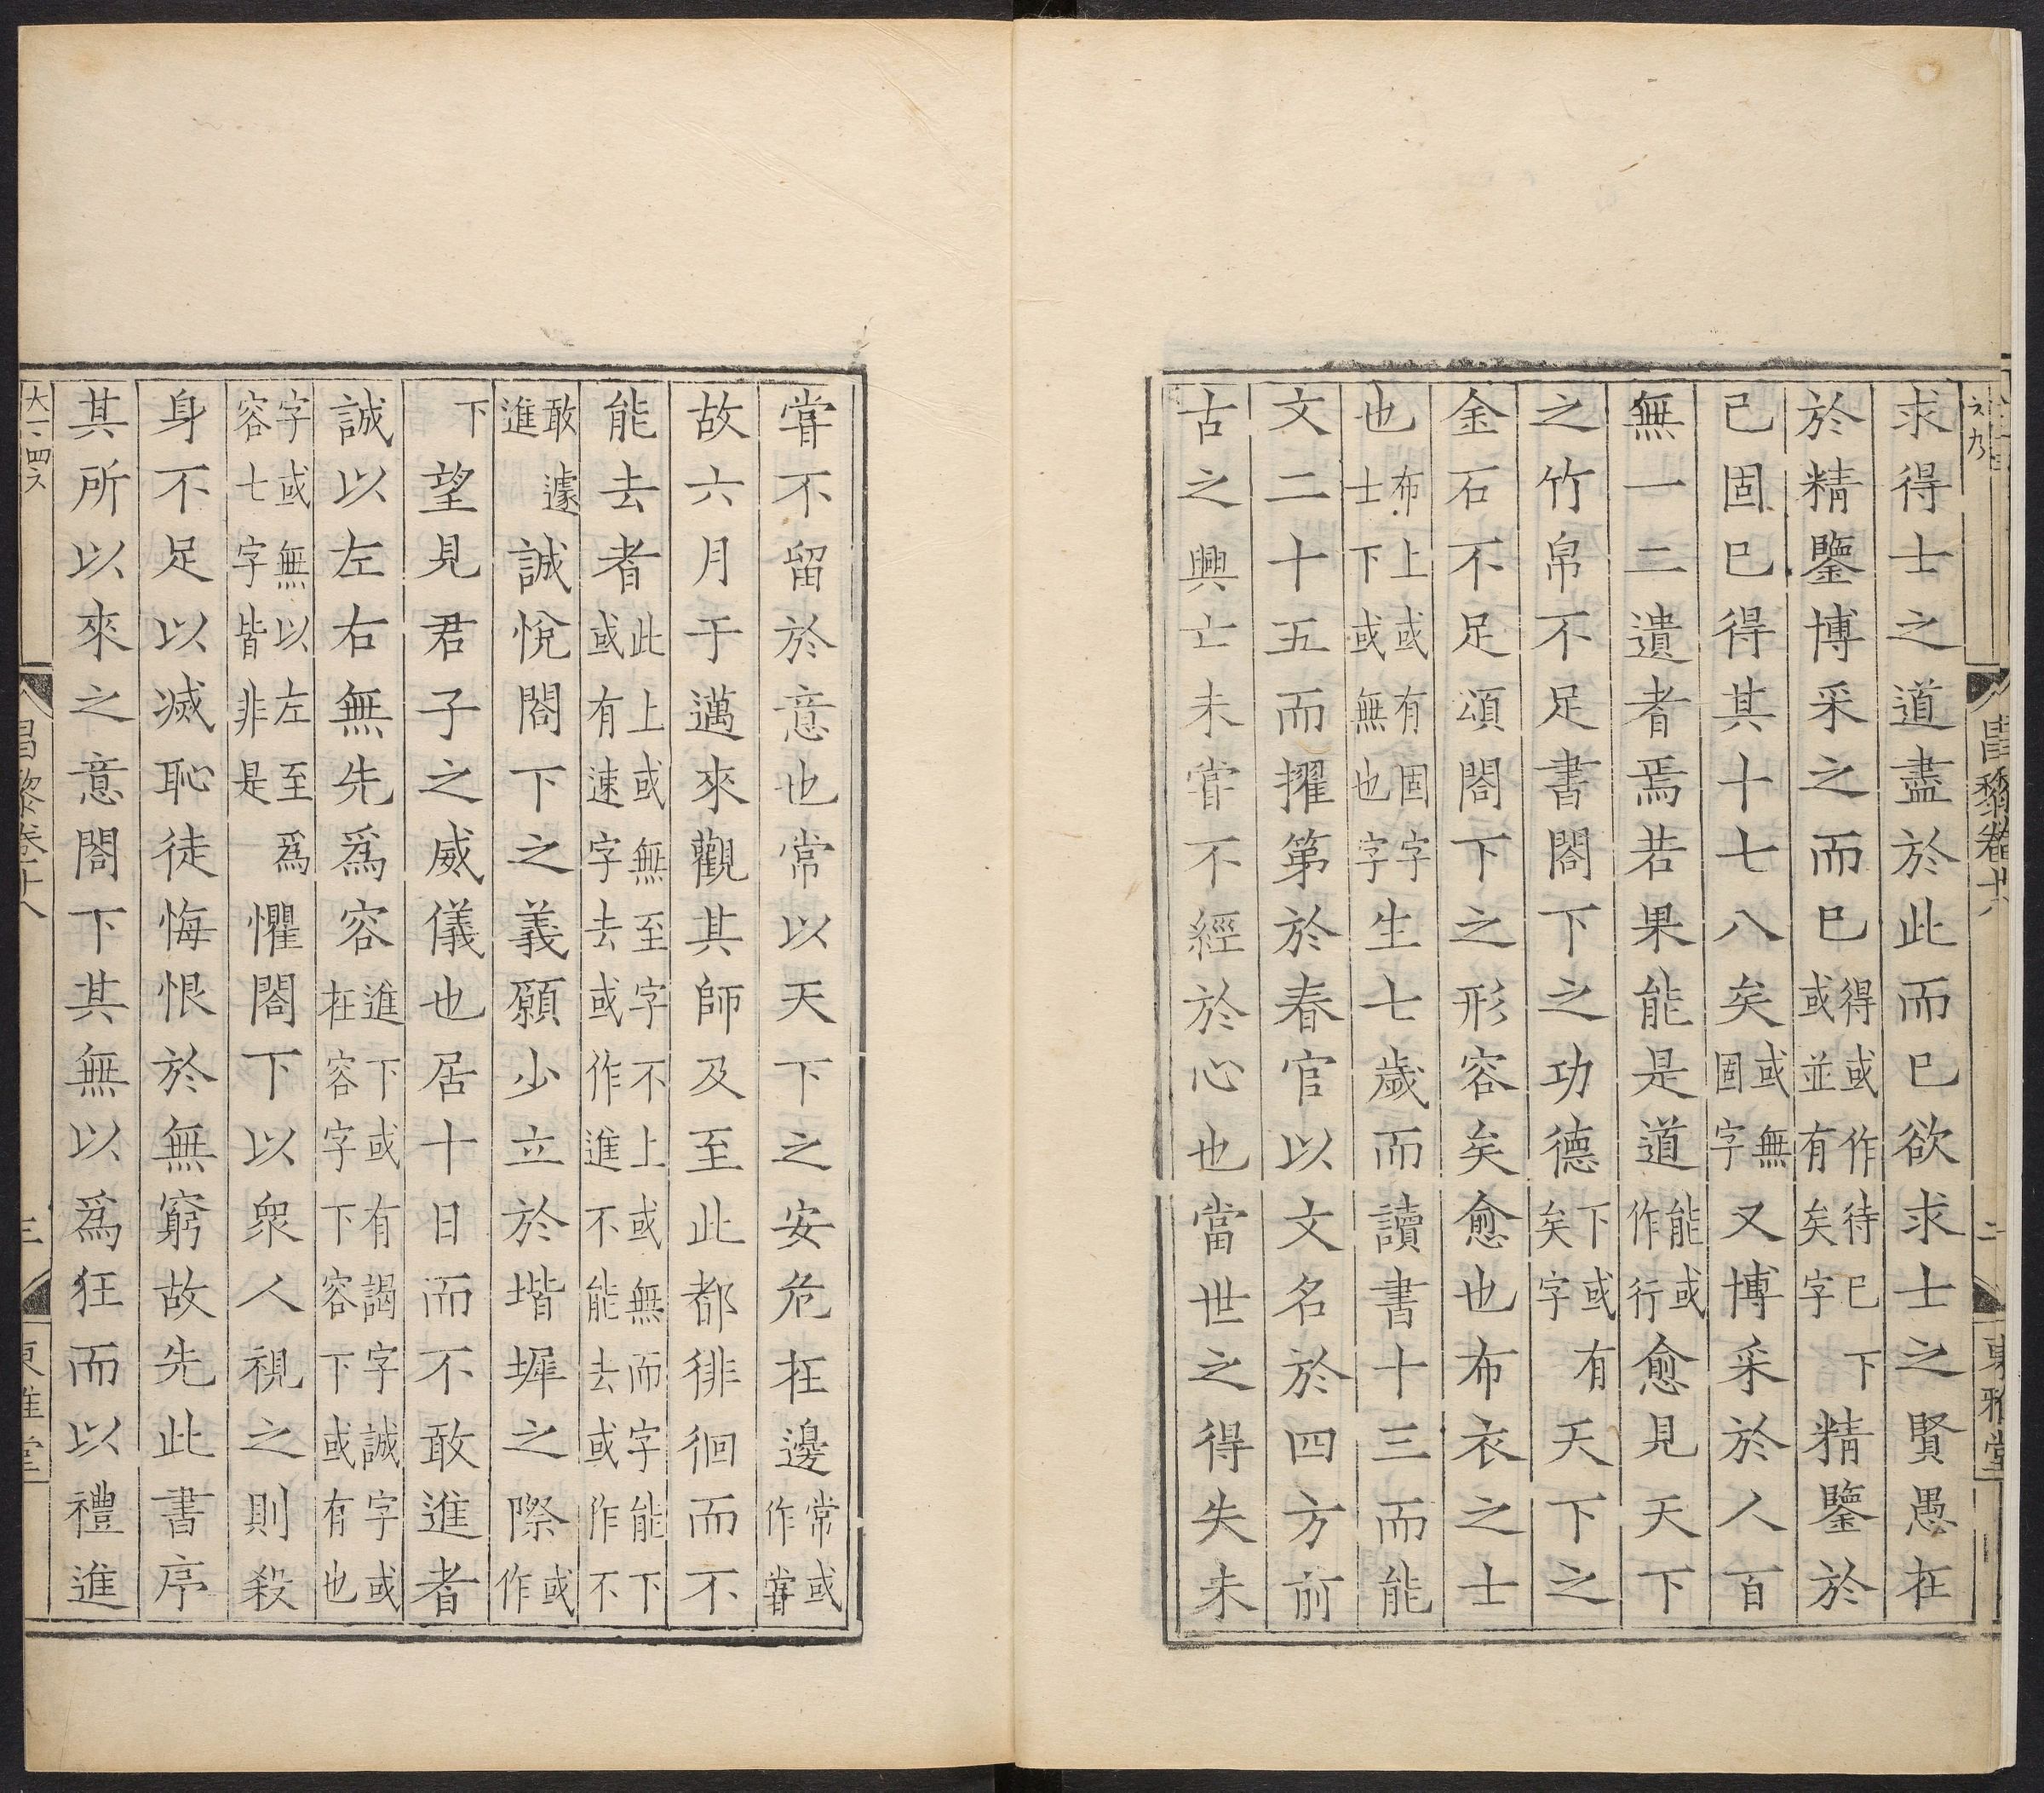 求得士之道盡於此而已欲求士之賢愚在
於精鑒博采之而已得或作待已下或並有矣字精鑒於
己固已得其十七八矣或無固字又博采於人百
無一二遺者焉若果能是道能或作行愈見天下
之竹帛不足書閤下之功德下或有矣字天下之
金石不足頌閤下之形容矣愈也布衣之士
也布上或有固字士下或無也字生七歲而讀書十三而能
文二十五而擢第於春官以文名於四方前
古之興亡未甞不經於心也當世之得失未
昌黎卷十八
二
東雅堂
甞不留於意也常以天下之安危在邊常或作甞
故六月于邁來觀其師及至此都徘徊而不
能去者此上或無至字不上或無而字能下或有速字去或作進不能去或作不
敢遽進誠悅閤下之義願少立於堦墀之際或作
下望見君子之威儀也居十日而不敢進者
誠以左右無先爲容進下或有謁字誠字或在容字下容下或有也
字或無以左至爲容七字皆非是懼閤下以衆人視之則殺
身不足以滅恥徒悔恨於無窮故先此書序
其所以來之意閤下其無以爲狂而以禮進
昌黎卷十八
三
東雅堂